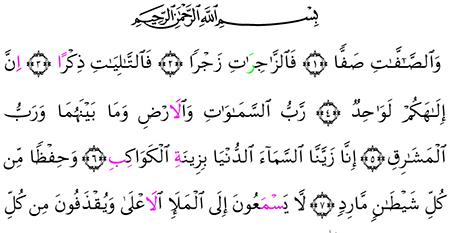 بِسْمِ اللَّهِ الرَّحْمَٰنِ الرَّحِيمِ
وَالصَّٰٓفَّٰتِ صَفًّا ﴿١﴾ فَالزَّٰجِرَٰتِ زَجْرًا ﴿٢﴾ فَالتَّٰلِيَٰتِ ذِكْرًا ﴿٣﴾ اِنَّ
إِلَٰهَكُمْ لَوَاحِدٌ ﴿٤﴾ رَّبُّ السَّمَٰوَٰتِ وَالَارْضِ وَمَا بَيْنَهُمَا وَرَبُّ
الْمَشَٰرِقِ ﴿٥﴾ إِنَّا زَيَّنَّا السَّمَآءَ الدُّنْيَا بِزِينَةِ الْكَوَاكِبِ ﴿٦﴾ وَحِفْظًا مِّن
كُلِّ شَيْطَٰنٍ مَّارِدٍ ﴿٧﴾ لَّا يَسْمَعُونَ إِلَى الْمَلَإِ الَاعْلَىٰ وَيُقْذَفُونَ مِن كُلِّ